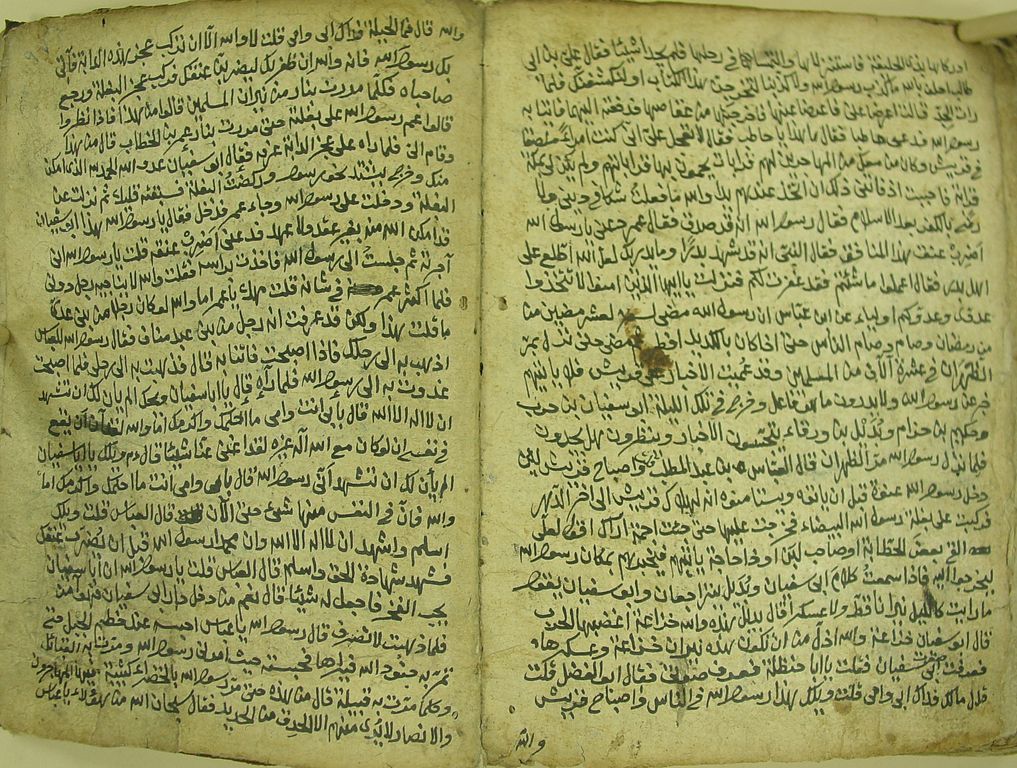 اوركابها بذى الحليفة فاستنزلاها والتمسا في رحلها فلم يجدا شيئا فقال على بن ابى
طالب احلف بالله ما كذب رسول الله ولا كذبنا لتخرجن هذا الكتاب او لنكشفنك فلما
رات الجد قالت اعرضا على فاعرضا عنها فاخرجته من عقاصها فدفعته اليهما فاتيا به
رسول الله فدعى حاطبا فقال ما هذا يا حاطب فقال لا تعجل على انى كنت امرءا ملصقا
في قريش وكان من معك من المهاجرين لهم قرابات يحمون بها قراباتهم ولم يكن لى بمكة
قرابة فاحببت اذ فاتنى ذلك ان اتخذ عندهم يدا والله ما فعلت شكا في دينى ولا
رضى بالكفر بعد الاسلام فقال رسول الله انه قد صدق فقال عمر دعنى يا رسول الله
اضرب عنق هذا المنافق فقال النبى انه قد شهد بدرا وما يدريك لعل الله اطلع على
اهل بدر فقال اعملوا ما شئتم فقد غفرت لكم فنزلت يا ايها الذين امنوا لا تتخذوا
عدوى وعدوكم اولياء عن ابن عباس ان رسول الله مضى لعشر مضين من
من رمضان وصام وصام الناس حتى اذا كان بالكديد افطر مضى حتى نزل بمر
الظهران في عشرة آلاف من المسلمين وقد عميت الاخبار على قريش فلا ياتيهم
خبر عن رسول الله ولا يدرون ما هو فاعل وخرج في تلك الليلة ابو سفيان بن حرب
وحكيم بن حزام وبديل بن ورقاء يتحسسون الاخبار وينظرون هل يجدون
فلما نزل رسول الله مر الظهران قال العباس بن عبد المطلب واصباح قريش لئن
دخل رسول الله عنوة قبل ان ياتوه ويستامنوه انه لهلاك قريش الى اخر الدهر
فركبت على بغلة رسول الله البيضاء فخرجت عليها حتى جئت اجمة اراك اقول لعلى
القى بعض الحطابة او صاحب لبن او ذا حاجة ياتيهم فيخبرهم بمكان رسول الله
ليخرجوا اليه فاذا سمعت كلام ابى سفيان وبديل يتراجعان وابو سفيان يقول
ما رايت كالليل نيرانا قط ولا عسكرا قال بديل هذه والله خزاعة اغضبها الحرب
قال ابو سفيان خزاعة والله اذل من ان تكون هذه نيران خزاعة وعسكرها
فعرفت ابى سفيان فقلت يا ابا حنظلة فعرف صوتى فقال ابو الفضل قلت
قال مالك فداك ابى وامى قلت ويلك هذا رسول الله في الناس واصباح قريش
والله
والله قال فما الحيلة فداك ابى وامى قلت لا والله الا ان تركب عجز هذه الدابة فآتى
بك رسول الله فانه والله ان ظفر بك ليضربن عنقك فركب عجز البغلة ورجع
صاحباه فكلما مررت بنار من نيران المسلمين قالوا من هذا فاذا نظروا
قالوا عم رسول الله على بغلته حتى مررت بنار عمر بن الخطاب قال من هذا
وقام الى فلما راه على عجز الدابة عرفه فقال ابو سفيان عدو الله الحمد لله الذى امكن
منك وخرج يشتد نحو رسول الله وركضت البغلة فسبقته قليلا ثم نزلت عن
البغلة ودخلت على رسول الله وجاء عمر فدخل فقال يا رسول الله هذا ابو سفيان
قد امكن الله منه بغير عقد ولا عهد فدعنى اضرب عنقه قلت يا رسول الله انى
آجرته ثم جلست الى رسول الله فاخذت براسه فقلت والله لا يناجيه رجل دونى
فلما اكثر عمر في شانه قلت مهلا يا عمر اما والله لو كان رجلا من بنى عدى
ما قلت هذا ولكن قد عرفت انه رجل من بنى عبد مناف فقال رسول الله للعباس
اذهب به الى رحلك فاذا اصبحت فاتنا به قال فذهبت به الى رحلى فلما اصبحت
غدوت به الى رسول الله فلما رآه قال يا ابا سفيان ويحك الم يان لك ان تشهد
ان لا اله الا الله قال بابى انت وامى ما احلمك واكرمك اما والله لقد كان يقع
في نفسى ان لو كان مع الله اله غيره لقد اغنى عنا شيئا قال ويلك يا ابا سفيان
الم يان لك ان تشهد انى رسول الله قال بابى وامى انت ما احلمك واكرمك اما
والله فان في النفس منها شىء حتى الآن قال العباس قلت ويلك
اسلم واشهد ان لا اله الا الله وان محمدا رسول الله قبل ان تضرب عنقك
فشهد شهادة الحق واسلم قال العباس قلت يا رسول الله ان ابا سفيان
يحب الفخر فاجعل له شيئا قال نعم من دخل دار ابى سفيان فهو آمن
فلما ذهبت لانصرف قال رسول الله يا عباس احبسه عند خطم الجبل حتى
تمر به جنود الله فيراها فحبسته حيث امرنى رسول الله ومرت به القبائل
وكلما مرت به قبيلة قال من هذه حتى مر رسول الله بالخضراء كتيبة فيها المهاجرون
والانصار لا يرى منهم الا الحدق من الحديد فقال سبحان الله من هؤلاء يا عباس